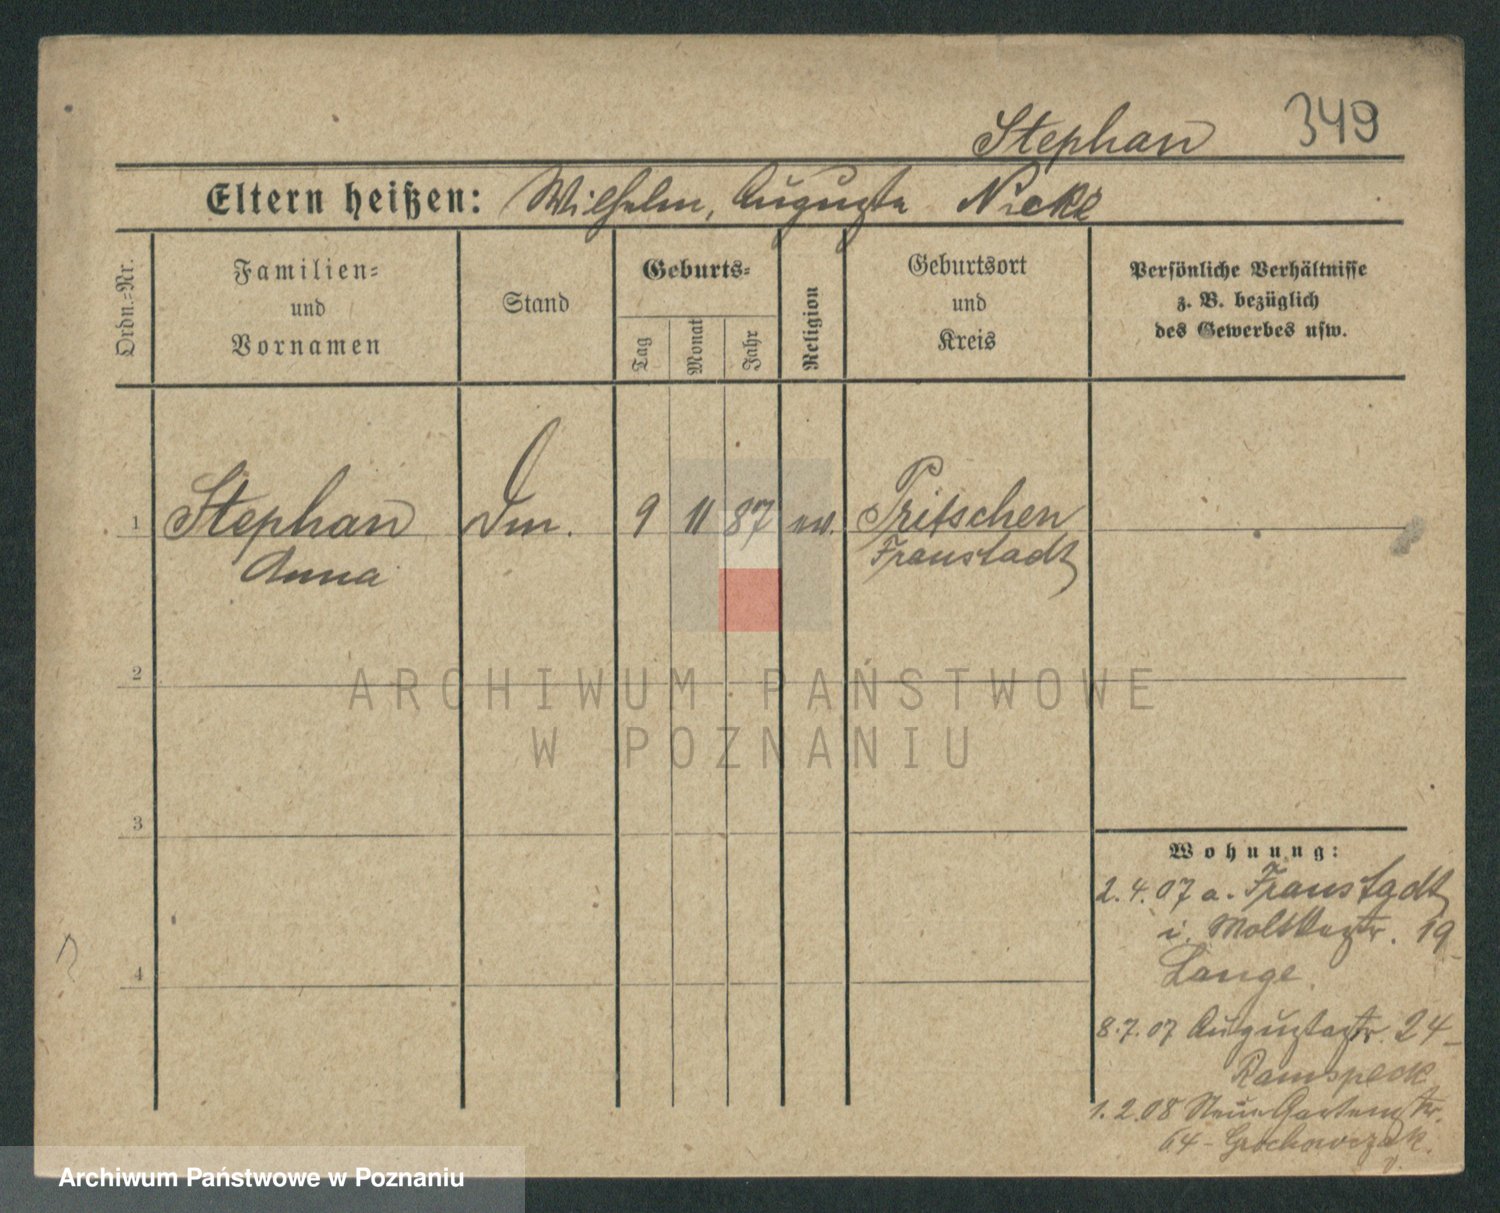 Stephan 349
Eltern heißen: Wilhelm, Auguste Nicke
Ordn.=Nr.
Familien=
und
Vornamen
Stand
Geburts=
Tag
Monat
Jahr
Religion
Geburtsort
und
Kreis
Persönliche Verhältnisse
z. B. bezüglich
des Gewerbes usw.
1 Stephan Dm. 9 11 87 ev. Pritschen
Anna Fraustadt
2
ARCHIWUM PAŃSTWOWE
W POZNANIU
3
Wohnung:
2.4.07 a. Fraustadt
i. Moltkestr. 19
Lange.
4
8.7.07 Augustastr. 24
Ramspeck
1.2.08 Neue Gartenstr.
64 - Grochowczak.
Archiwum Państwowe w Poznaniu